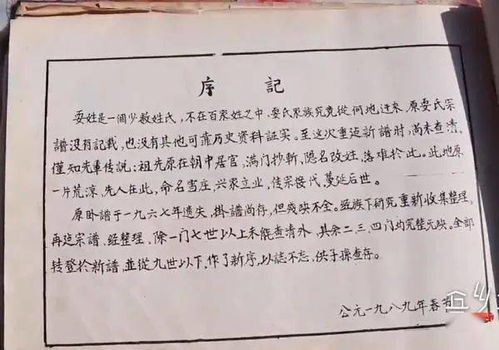 序記
耍姓是一個少数姓氏，不在百家姓之中，耍氏家族究竟從何地迁来，原耍氏宗
譜没有記載，也没有其他可靠历史資料証実。至這次重修新譜时，尚未查清，
僅知先辈传說：祖先原在朝中居官，满门抄斬，隐名改姓，落难於此。此地原
一片荒凉，先人在此，命名雪庄，兴家立业，传宗接代，蔓延后世。
原卧譜于一九六七年遗失，掛譜尚存，但残缺不全。经族下研究重新收集整理，
再造宗譜。经整理，除一门七世以上未能查清外，其余二、三、四门均完整无缺。全部
转登於新譜，並從九世以下，作了新序，以誌不忘，供子孫查存。
公元一九八九年春